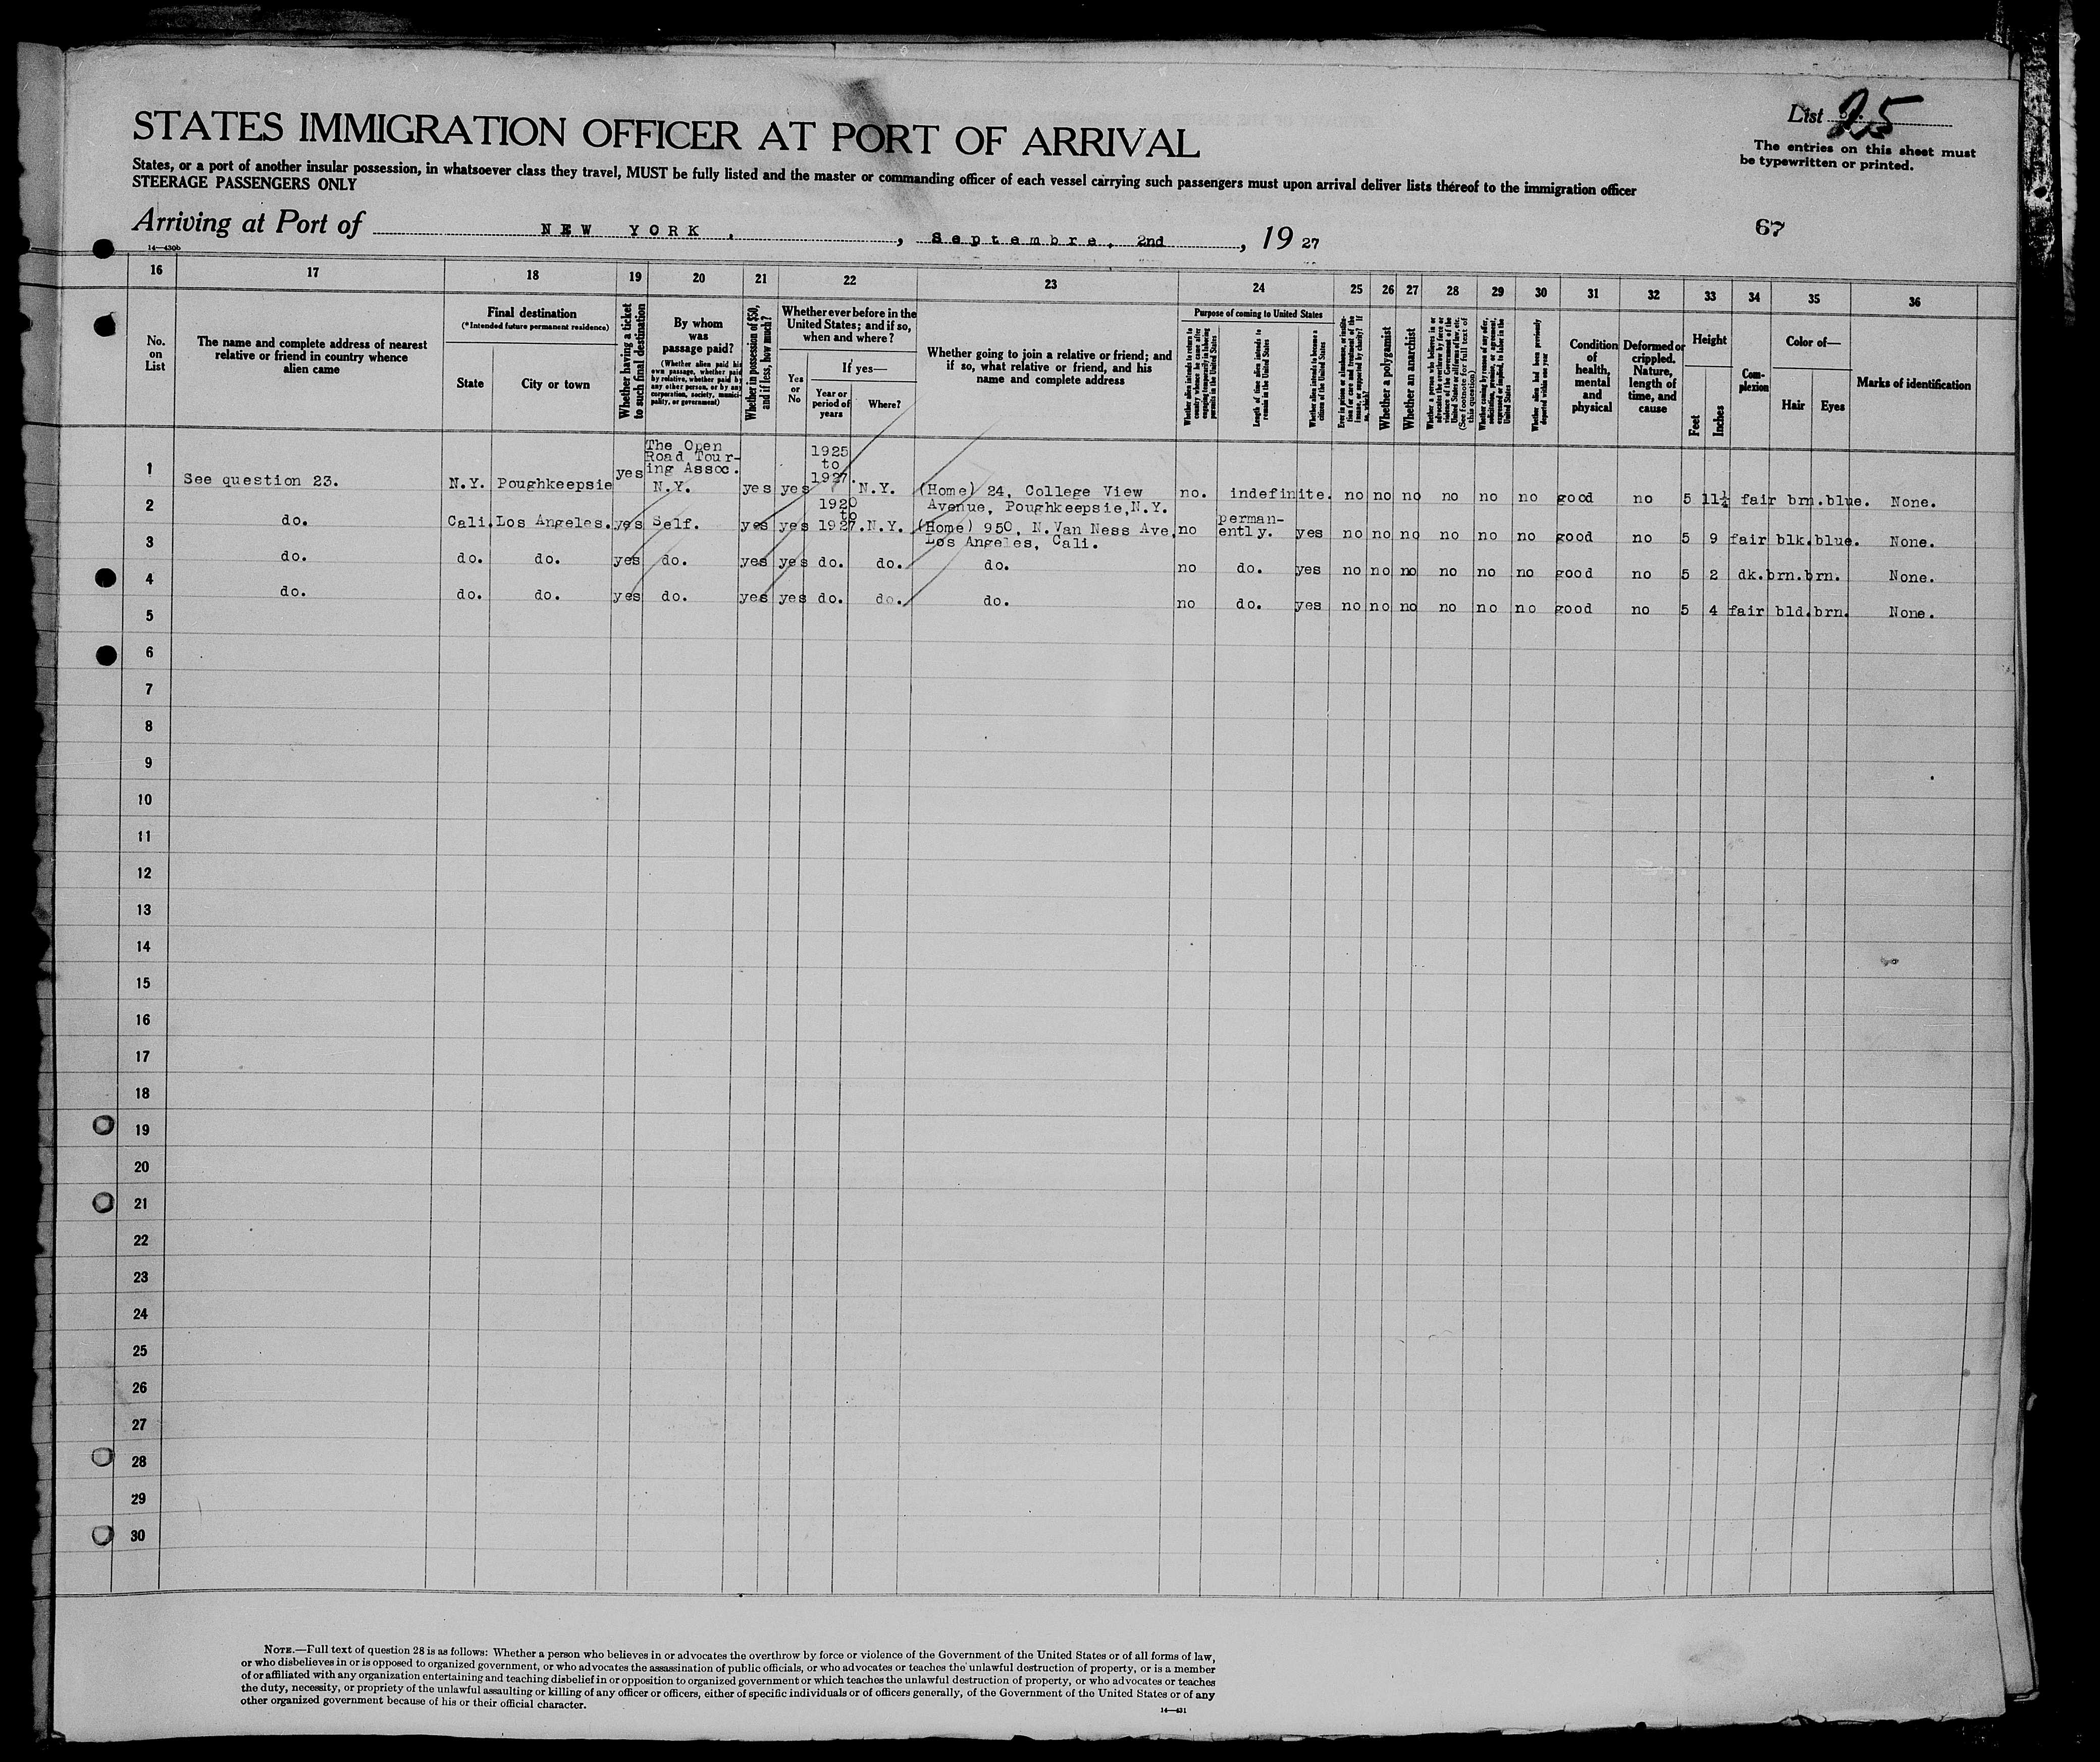 STATES IMMIGRATION OFFICER AT PORT OF ARRIVAL
List 25
The entries on this sheet must
be typewritten or printed.
States, or a port of another insular possession, in whatsoever class they travel, MUST be fully listed and the master or commanding officer of each vessel carrying such passengers must upon arrival deliver lists thereof to the immigration officer
STEERAGE PASSENGERS ONLY
Arriving at Port of NEW YORK. , Septembre, 2nd , 19 27
67
14—430b
16 17 18 19 20 21 22 23 24 25 26 27 28 29 30 31 32 33 34 35 36
No.
on
List
The name and complete address of nearest
relative or friend in country whence
alien came
Final destination
(*Intended future permanent residence)
State
City or town
Whether having a ticket
to such final destination
By whom
was
passage paid?
(Whether alien paid his
own passage, whether paid
by relative, whether paid by
any other person, or by any
corporation, society, munici-
pality, or government)
Whether in possession of $50,
and if less, how much?
Whether ever before in the
United States; and if so,
when and where?
Yes
or
No
If yes—
Year or
period of
years
Where?
Whether going to join a relative or friend; and
if so, what relative or friend, and his
name and complete address
Purpose of coming to United States
Whether alien intends to return to
country whence he came after
engaging temporarily in laboring
pursuits in the United States
Length of time alien intends to
remain in the United States
Whether alien intends to become a
citizen of the United States
Ever in prison or almshouse, or institu-
tion for care and treatment of the
insane, or supported by charity? If
so, which?
Whether a polygamist
Whether an anarchist
Whether a person who believes in or
advocates the overthrow by force or
violence of the Government of the
United States or all forms of law, etc.
(See footnote for full text of
this question)
Whether coming by reason of any offer,
solicitation, promise, or agreement,
expressed or implied, to labor in the
United States
Whether alien had been previously
deported within one year
Condition
of
health,
mental
and
physical
Deformed or
crippled.
Nature,
length of
time, and
cause
Height
Feet
Inches
Com-
plexion
Color of—
Hair
Eyes
Marks of identification
1 See question 23. N.Y. Poughkeepsie yes The Open
Road Tour-
ing Assoc.
N.Y. yes yes 1925
to
1927. N.Y. (Home) 24, College View
Avenue, Poughkeepsie,N.Y. no. indefinite. no no no no no no good no 5 11½ fair brn. blue. None.
2 do. Cali. Los Angeles. yes Self. yes yes 1920
to
1927. N.Y. (Home) 950, N.Van Ness Ave,
Los Angeles, Cali. no perman-
ently. yes no no no no no no good no 5 9 fair blk. blue. None.
3 do. do. do. yes do. yes yes do. do. do. no do. yes no no no no no no good no 5 2 dk. brn. brn. None.
4 do. do. do. yes do. yes yes do. do. do. no do. yes no no no no no no good no 5 4 fair bld. brn. None.
5
6
7
8
9
10
11
12
13
14
15
16
17
18
19
20
21
22
23
24
25
26
27
28
29
30
NOTE.—Full text of question 28 is as follows: Whether a person who believes in or advocates the overthrow by force or violence of the Government of the United States or of all forms of law,
or who disbelieves in or is opposed to organized government, or who advocates the assassination of public officials, or who advocates or teaches the unlawful destruction of property, or is a member
of or affiliated with any organization entertaining and teaching disbelief in or opposition to organized government or which teaches the unlawful destruction of property, or who advocates or teaches
the duty, necessity, or propriety of the unlawful assaulting or killing of any officer or officers, either of specific individuals or of officers generally, of the Government of the United States or of any
other organized government because of his or their official character.
14—431